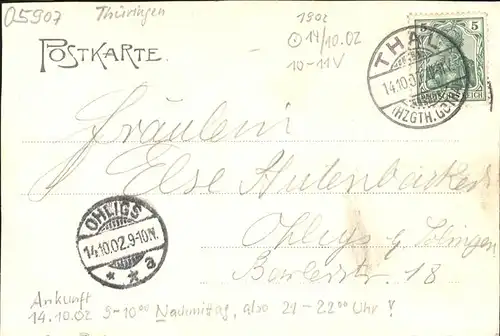 05907 Thüringen
1902
14/10.02
10-11V
POSTKARTE.
5
THAL
14.10.02
(HZGTH. GOTHA)
REICH
Fräulein
Else
Ohligs b. Solingen
18
OHLIGS
14.10.02.9-10N.
* * a
Ankunft
14.10.02 9-10⁰⁰ Nachmittag, also 21-22⁰⁰ Uhr!